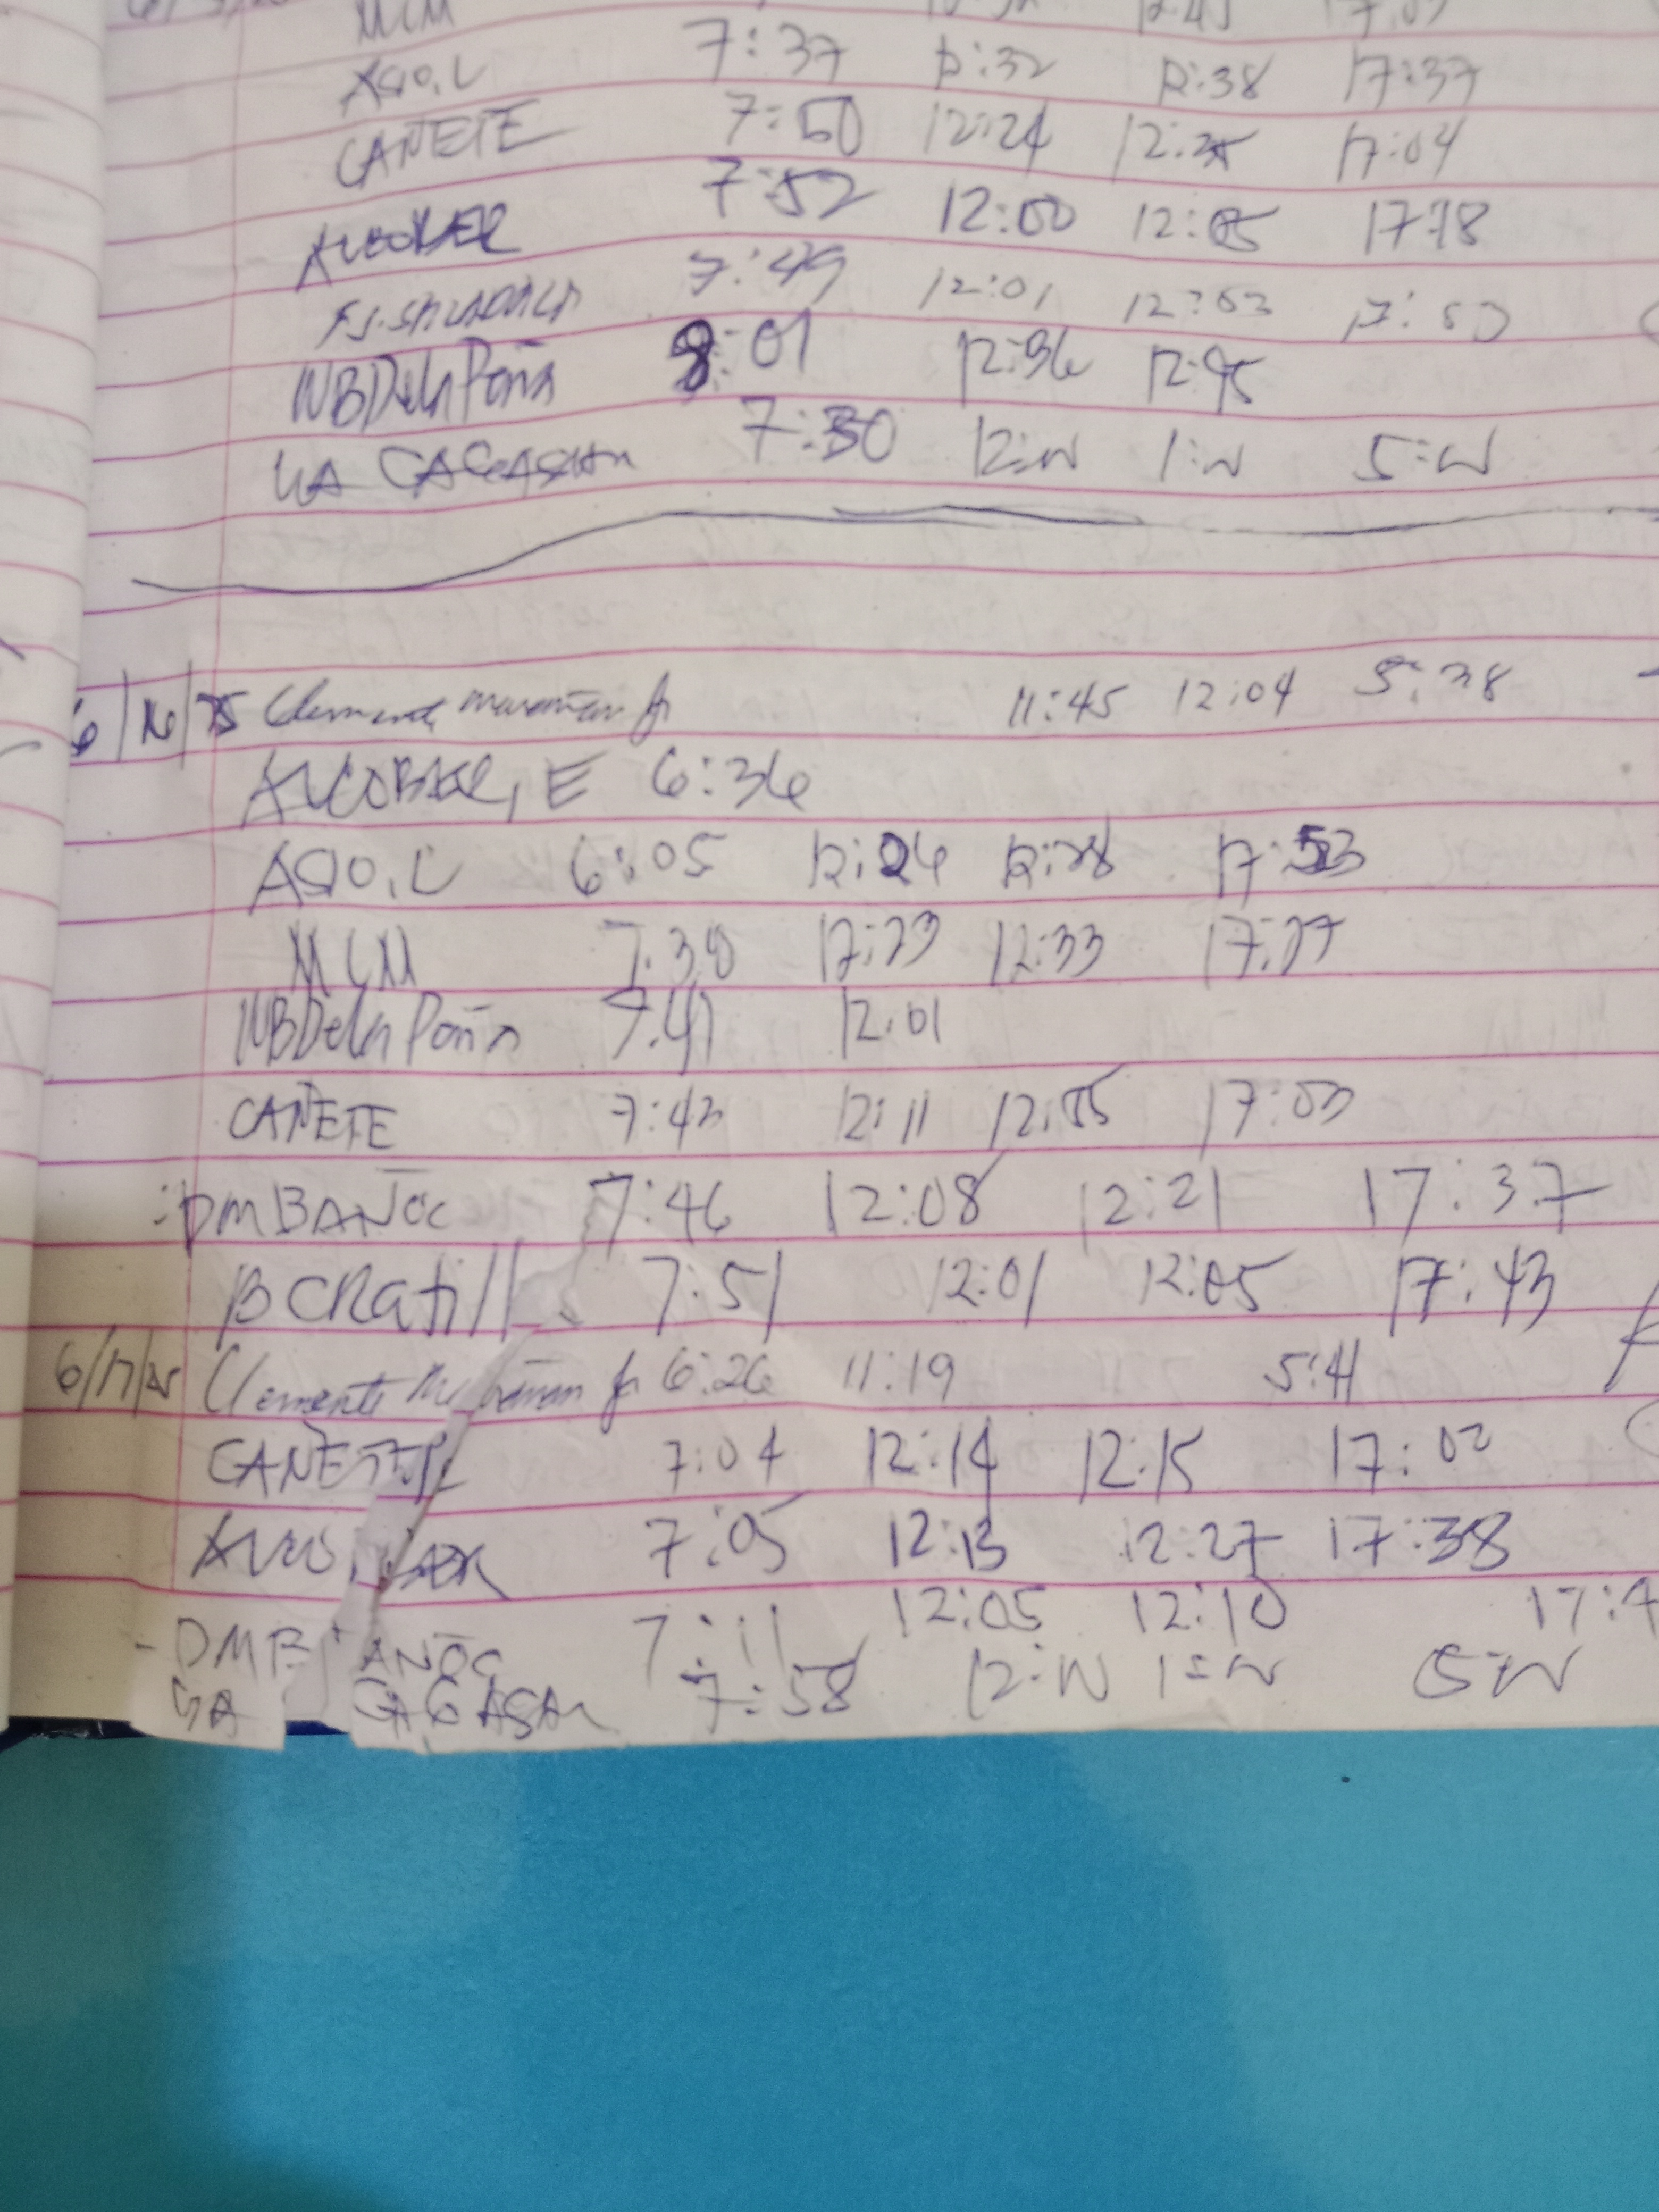 MCM
ASIO.L 7:37 12:32 12:38 17:37
CAÑETE 7:50 12:24 17:04
7:52 12:00 12:05 17:18
7:49 12:01 12:03
NBDelaPeña 8:01 12:36 12:45
GA CAGASAN 7:30 12:N 1:N 5:N
6/16/25 Clemente 11:45 12:04 5:38
ALCOBER, E 6:36
ASIO.L 6:05 12:26 12:28 17:53
MCM 7:38 12:23 12:33 17:27
NBDela Peña 7:41 12:01
CAÑETE 7:43 12:11 12:15 17:03
DMBAÑOC 7:46 12:08 12:21 17:37
BCRatill 7:51 12:01 12:05 17:43
6/17/25 Clemente 6:26 11:19 5:41
CAÑETE 7:04 12:14 12:15 17:02
7:05 12:13 12:27 17:38
DMB AÑOC 7:11 12:05 12:10 17:4
GA CAGASAN 7:58 12:N 1:N 5:N